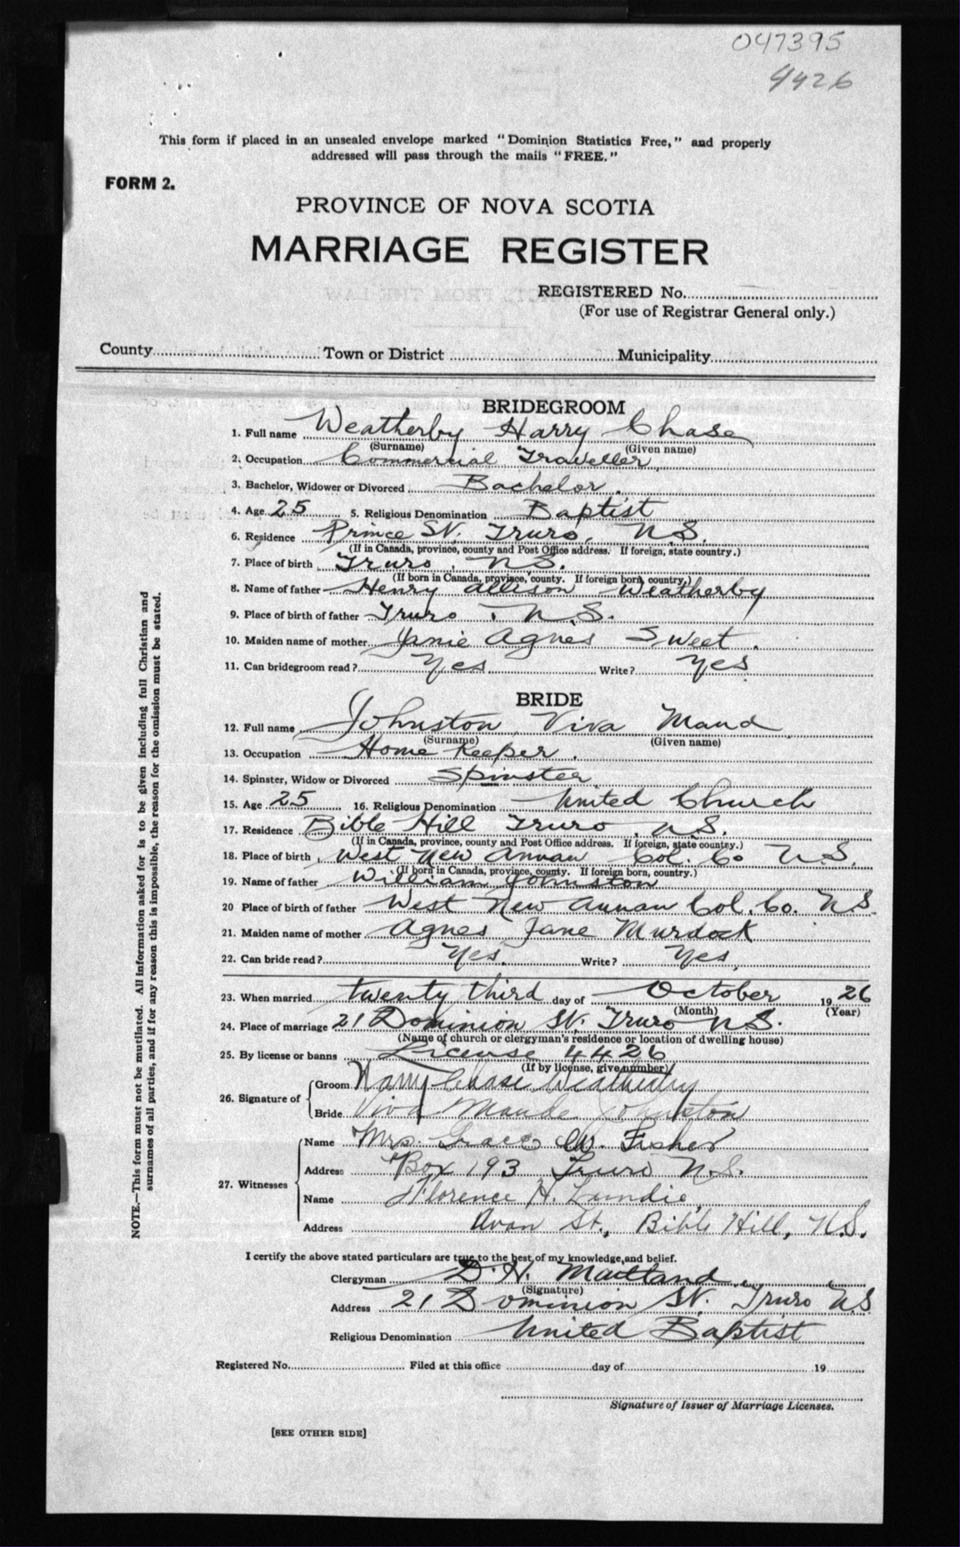 047395
4426
This form if placed in an unsealed envelope marked "Dominion Statistics Free," and properly
addressed will pass through the mails "FREE."
FORM 2.
PROVINCE OF NOVA SCOTIA
MARRIAGE REGISTER
REGISTERED No.
(For use of Registrar General only.)
County Town or District Municipality
BRIDEGROOM
1. Full name Weatherby Harry Chase
(Surname) (Given name)
2. Occupation Commercial Traveller
3. Bachelor, Widower or Divorced Bachelor.
4. Age 25 5. Religious Denomination Baptist
6. Residence Prince St. Truro, N.S.
(If in Canada, province, county and Post Office address. If foreign, state country.)
7. Place of birth Truro, N.S.
(If born in Canada, province, county. If foreign born, country.)
8. Name of father Henry Allison Weatherby
9. Place of birth of father Truro, N.S.
10. Maiden name of mother Agnes Sweet.
11. Can bridegroom read? Yes Write? Yes
BRIDE
12. Full name Johnston Viva Maud
(Surname) (Given name)
13. Occupation Home Keeper.
14. Spinster, Widow or Divorced Spinster
15. Age 25 16. Religious Denomination United Church
17. Residence Bible Hill Truro, N.S.
(If in Canada, province, county and Post Office address. If foreign, state country.)
18. Place of birth West New Annan Col. Co N.S.
(If born in Canada, province, county. If foreign born, country.)
19. Name of father William Johnston
20 Place of birth of father West New Annan Col. Co. N.S.
21. Maiden name of mother Agnes Jane Murdock
22. Can bride read? Yes. Write? Yes,
23. When married twenty third day of October 1926
(Month) (Year)
24. Place of marriage 21 Dominion St. Truro N.S.
(Name of church or clergyman's residence or location of dwelling house)
25. By license or banns License 4426
(If by license, give number)
26. Signature of Groom Harry Chase Weatherby
Bride Viva Maude Johnston
27. Witnesses
Name Mrs. Grace W. Fisher
Address Box 193 Truro N.S.
Name Florence H. Lundie,
Address St., Bible Hill, N.S.
I certify the above stated particulars are true to the best of my knowledge and belief.
Clergyman D. H. Maitland
(Signature)
Address 21 Dominion St. Truro N.S
Religious Denomination United Baptist
Registered No. Filed at this office day of 19
Signature of Issuer of Marriage Licenses.
[SEE OTHER SIDE]
NOTE.—This form must not be mutilated. All information asked for is to be given including full Christian and
surnames of all parties, and if for any reason this is impossible, the reason for the omission must be stated.